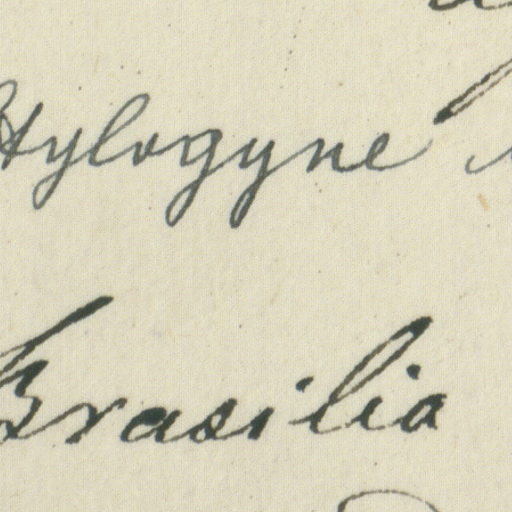 Stylogyne
Brasilia